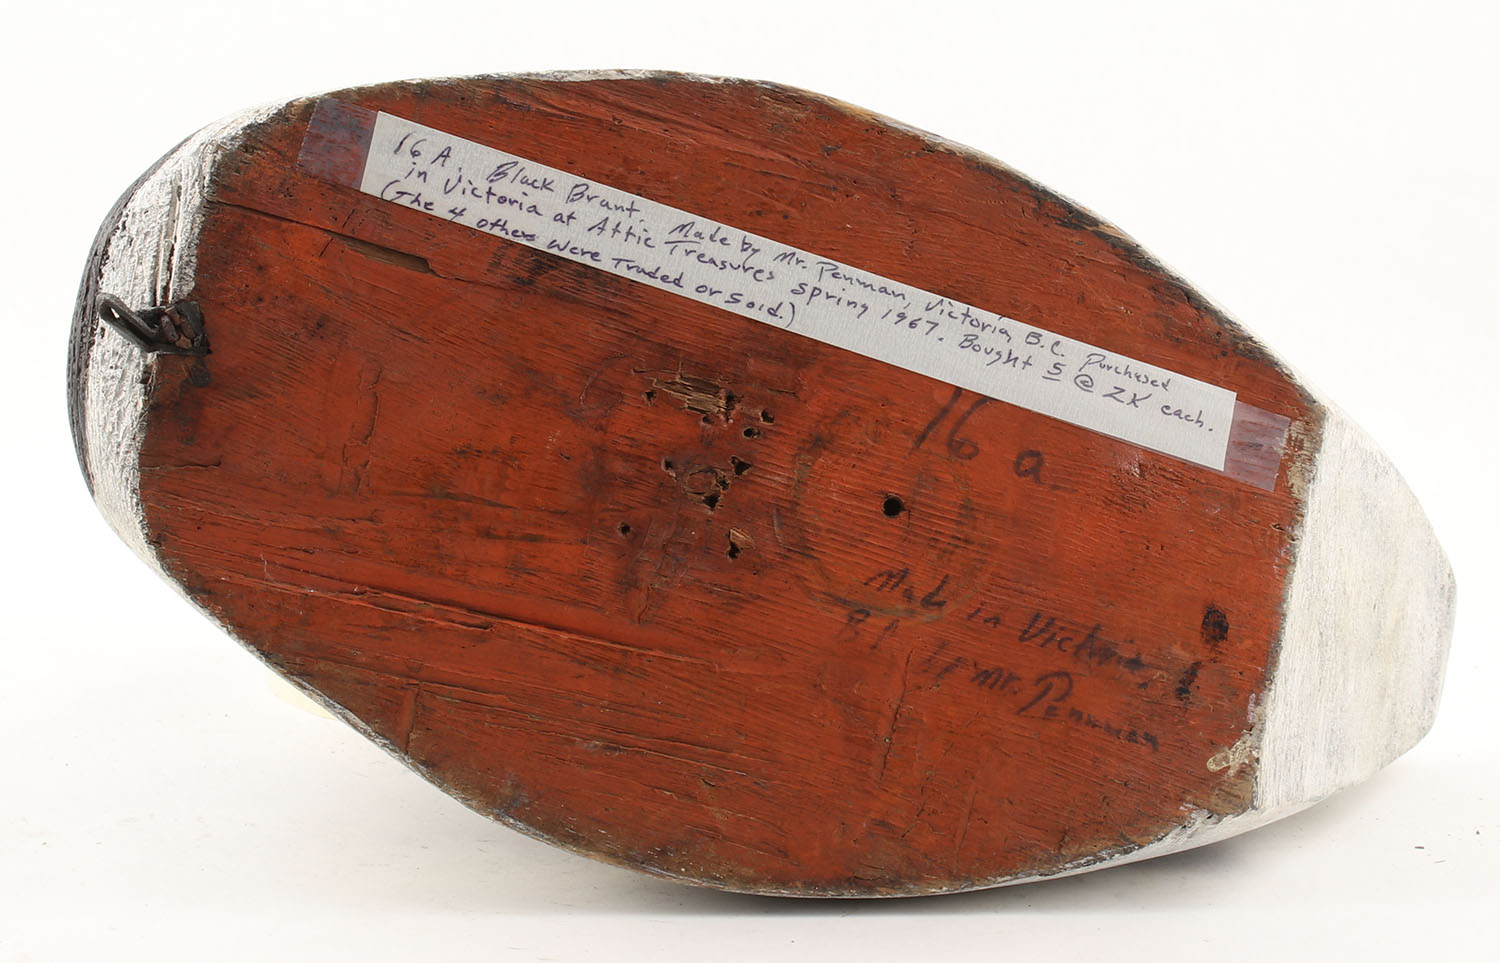 16 A. Black Brant. Made by Mr. Penman, Victoria, B.C. Purchased
in Victoria at Attic Treasures spring 1967. Bought 5 @ 2X each.
(The 4 others were Traded or sold.)
16 a
Made in Victoria,
Mr. Pennman